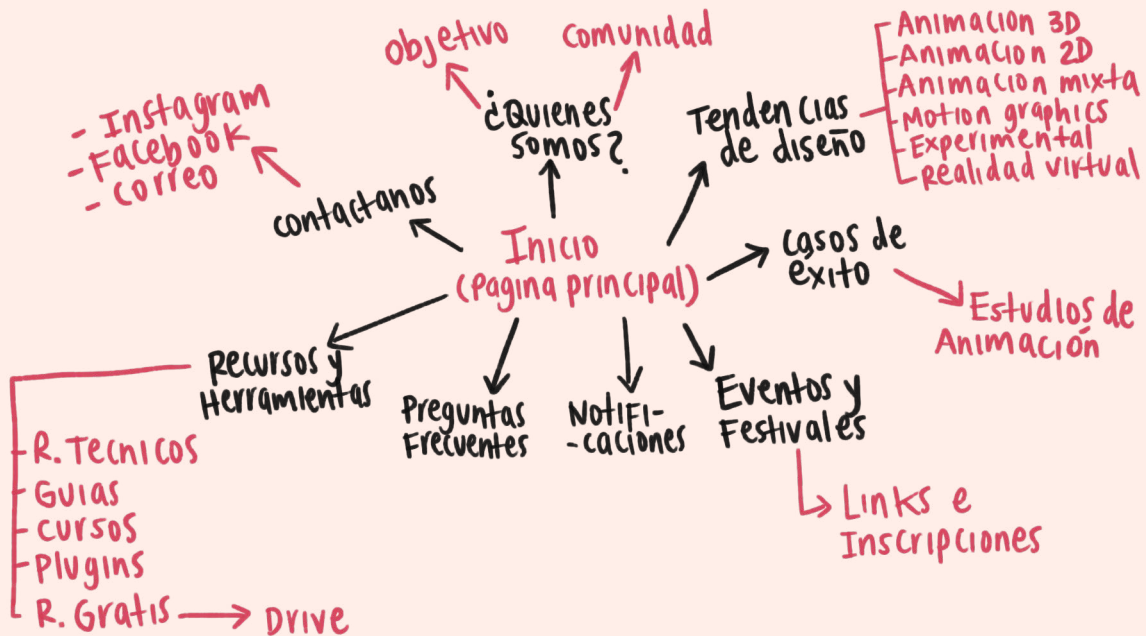 Objetivo
Comunidad
¿Quienes
somos?
Tendencias
de diseño
Animacion 3D
Animacion 2D
Animacion mixta
Motion graphics
Experimental
Realidad virtual
- Instagram
- Facebook
- Correo
Contactanos
Inicio
(Pagina principal)
Casos de
éxito
Estudios de
Animación
Recursos y
Herramientas
R. Tecnicos
Guias
Cursos
Plugins
R. Gratis
Drive
Preguntas
Frecuentes
Notifi-
-caciones
Eventos y
Festivales
Links e
Inscripciones